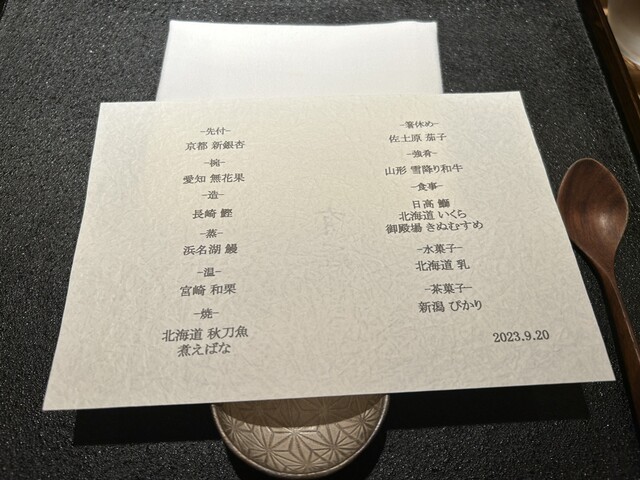 –先付–
京都 新銀杏
–椀–
愛知 無花果
–造–
長崎 鰹
–蒸–
浜名湖 鰻
–温–
宮崎 和栗
–焼–
北海道 秋刀魚
煮えばな
–箸休め–
佐土原 茄子
–強肴–
山形 雪降り和牛
–食事–
日高 鰤
北海道 いくら
御殿場 きぬむすめ
–水菓子–
北海道 乳
–茶菓子–
新潟 ぴかり
2023.9.20